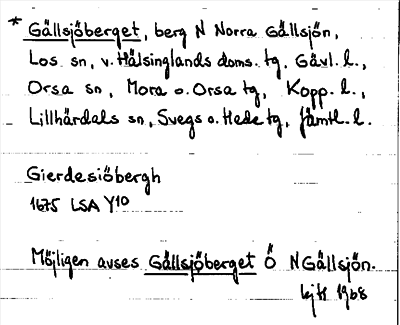 * Gällsjöberget, berg N Norra Gällsjön,
Los sn, v. Hälsinglands doms. tg, Gävl. l.,
Orsa sn, Mora o. Orsa tg, Kopp. l.,
Lillhärdals sn, Svegs o. Hede tg, Jämtl. l.
Gierdesiöbergh
1675 LSA Y10
Möjligen avses Gällsjöberget Ö N Gällsjön.
1968